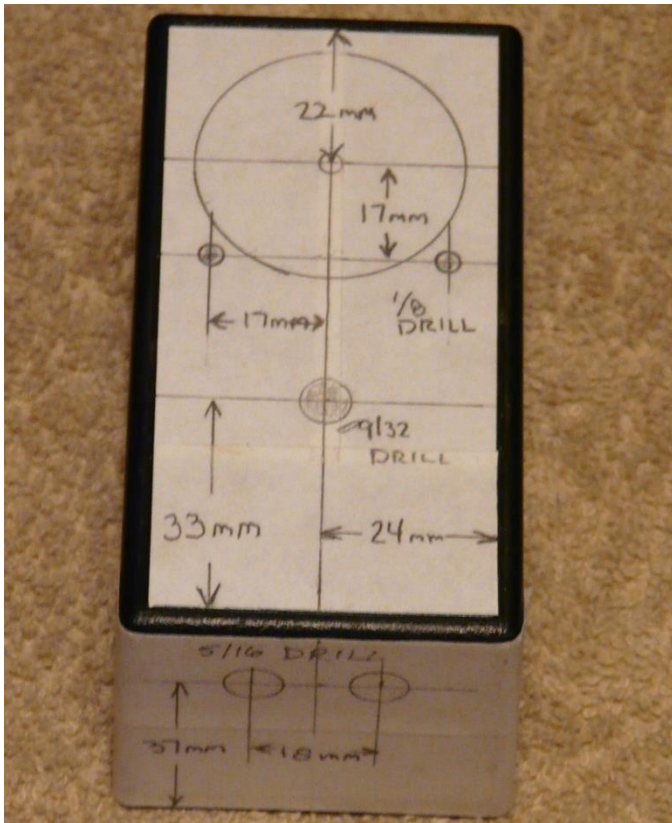 22mm
17mm
17mm
1/8
DRILL
9/32
DRILL
33mm
24mm
5/16 DRILL
37mm
18mm